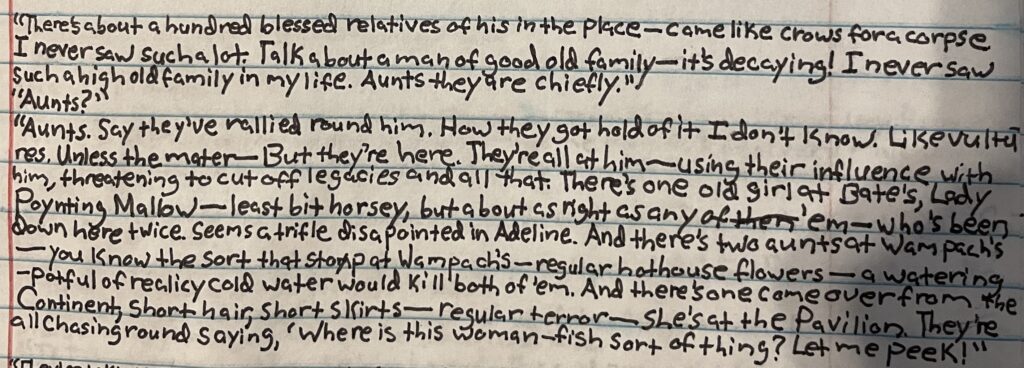 "There's about a hundred blessed relatives of his in the place—came like crows for a corpse
I never saw such a lot. Talk about a man of good old family—it's decaying! I never saw
such a high old family in my life. Aunts they are chiefly."
"Aunts?"
"Aunts. Say they've rallied round him. How they got hold of it I don't know. Like vultu
res. Unless the mater— But they're here. They're all at him—using their influence with
him, threatening to cut off legacies and all that. There's one old girl at Bate's, Lady
Poynting Mallow—least bit horsey, but about as right as any of them 'em—who's been
down here twice. Seems a trifle disapointed in Adeline. And there's two aunts at Wampach's
—you know the sort that stop at Wampach's—regular hothouse flowers—a watering
-potful of real icy cold water would kill both of 'em. And there's one come over from the
Continent, short hair, short skirts—regular terror—she's at the Pavilion. They're
all chasing round saying, 'Where is this woman-fish sort of thing? Let me peek!"